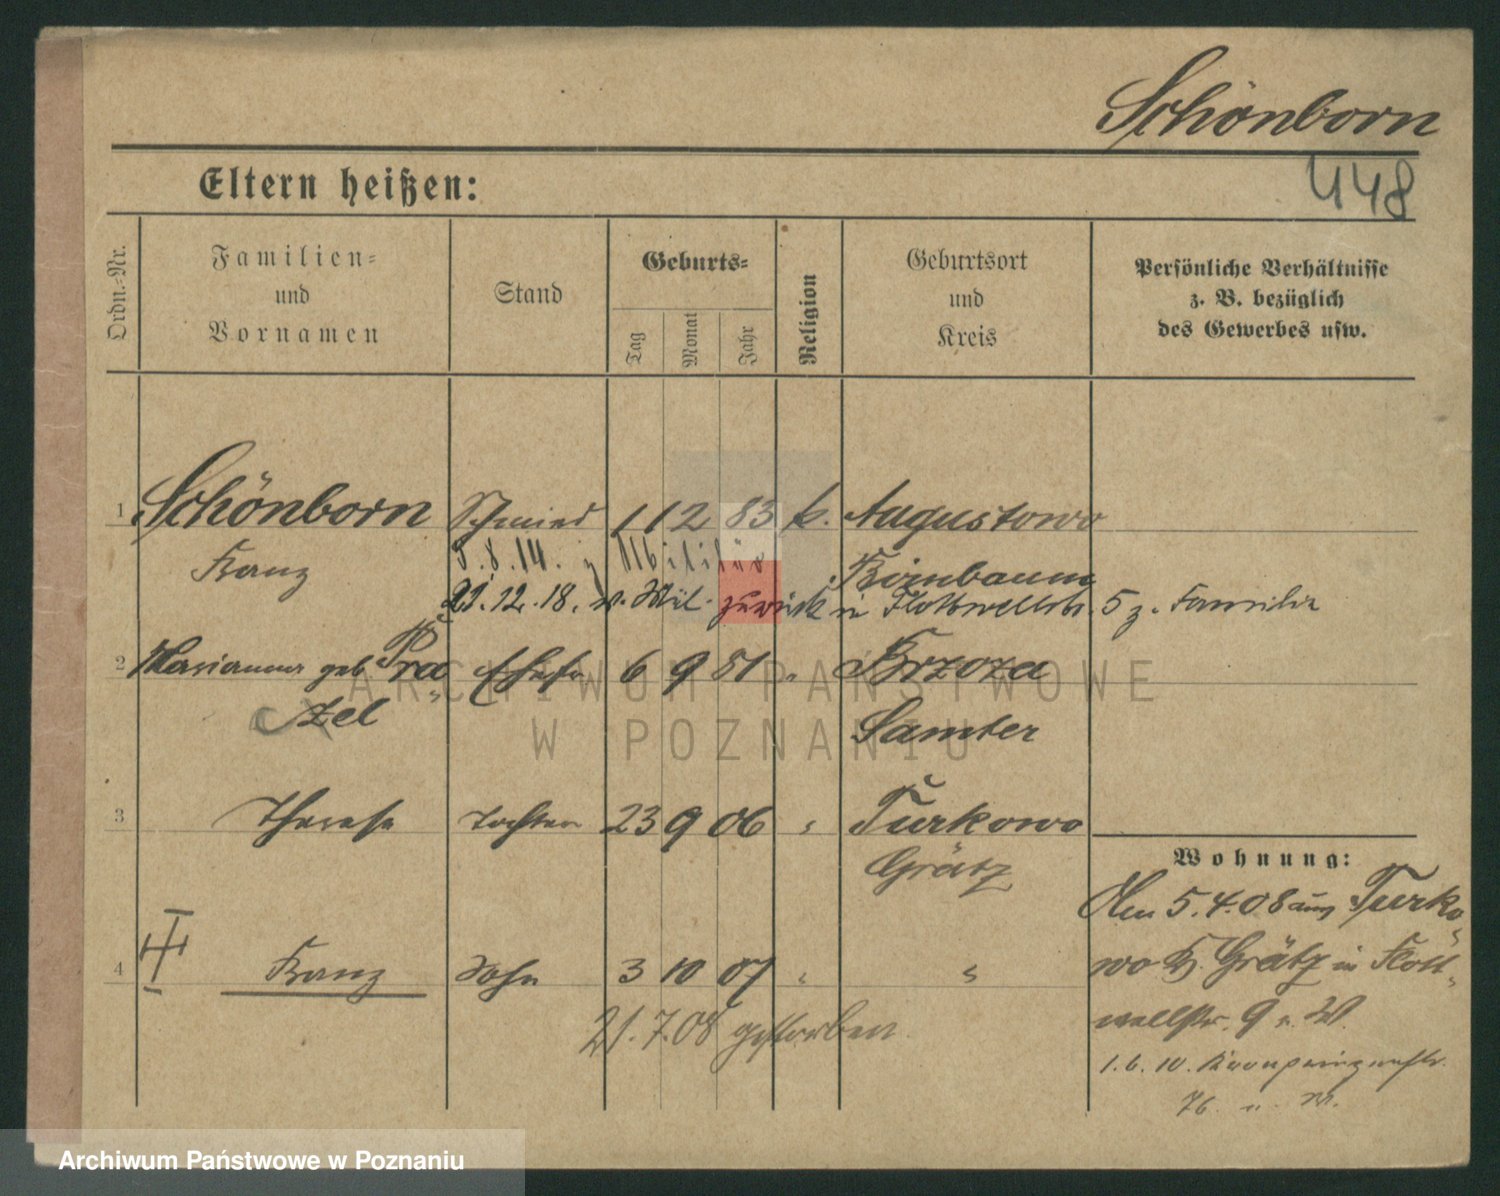 Schönborn
448
Eltern heißen:
Ordn.-Nr.
Familien-
und
Vornamen
Stand
Geburts-
Tag
Monat
Jahr
Religion
Geburtsort
und
Kreis
Persönliche Verhältnisse
z. B. bezüglich
des Gewerbes usw.
1 Schönborn Schmied 1 12 83 k. Augustowo
Franz Birnbaum
5.8.14. z Militär
21.12.18. v. Mil. zurück in Flottwellstr. 5 z. Familie
2 Marianna geb. Pra Ehefr 6 9 81 " Brzoza
zel Samter
3 Therese Tochter 23 9 06 " Turkowo
Grätz
4 Franz Sohn 3 10 07 " "
21.7.08 gestorben
Wohnung:
Am 5.4.08 aus Turko
wo K. Grätz in Flott
wellstr. 9 v. W.
1.6.10. Kronprinzenstr.
76
ARCHIWUM PAŃSTWOWE
W POZNANIU
Archiwum Państwowe w Poznaniu